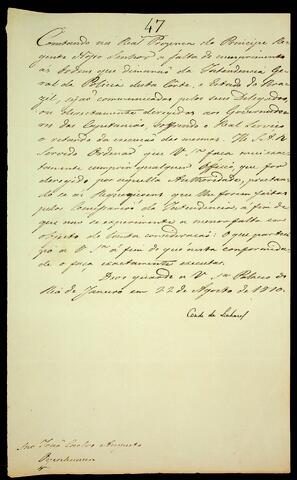 47
Constando na Real Prezença do Principe Re-
gente Nosso Senhor a falta de cumprimento
ás ordens que dimanão da Intendencia Ge-
ral da Policia desta Corte, e Estado do Bra-
zil, sejão communicadas pelos seus Delegados,
ou directamente derigidas aos Governadores
das Capitanias, soffrendo o Real Serviço
o retardo da execução das mesmas: He S.A.R.
Servido Ordenar que V. S.ª faça exac-
tamente cumprir qualquer Officio, que for
derigido por aquella Authoridade, prestan-
do-se as Requiziçoens que lhe forem feitas
pela Intendencia, a fim de
que não se experimente a menor falta em
objecto de tanta consideração: O que partici-
po a V. S.ª a fim de que nesta conformida-
de o faça exactamente executar.
Deos guarde a V. S.ª Palacio do
Rio de Janeiro em 22 de Agosto de 1810.
Conde de Linhares
Snr João Carlos Augusto
Oyenhausen